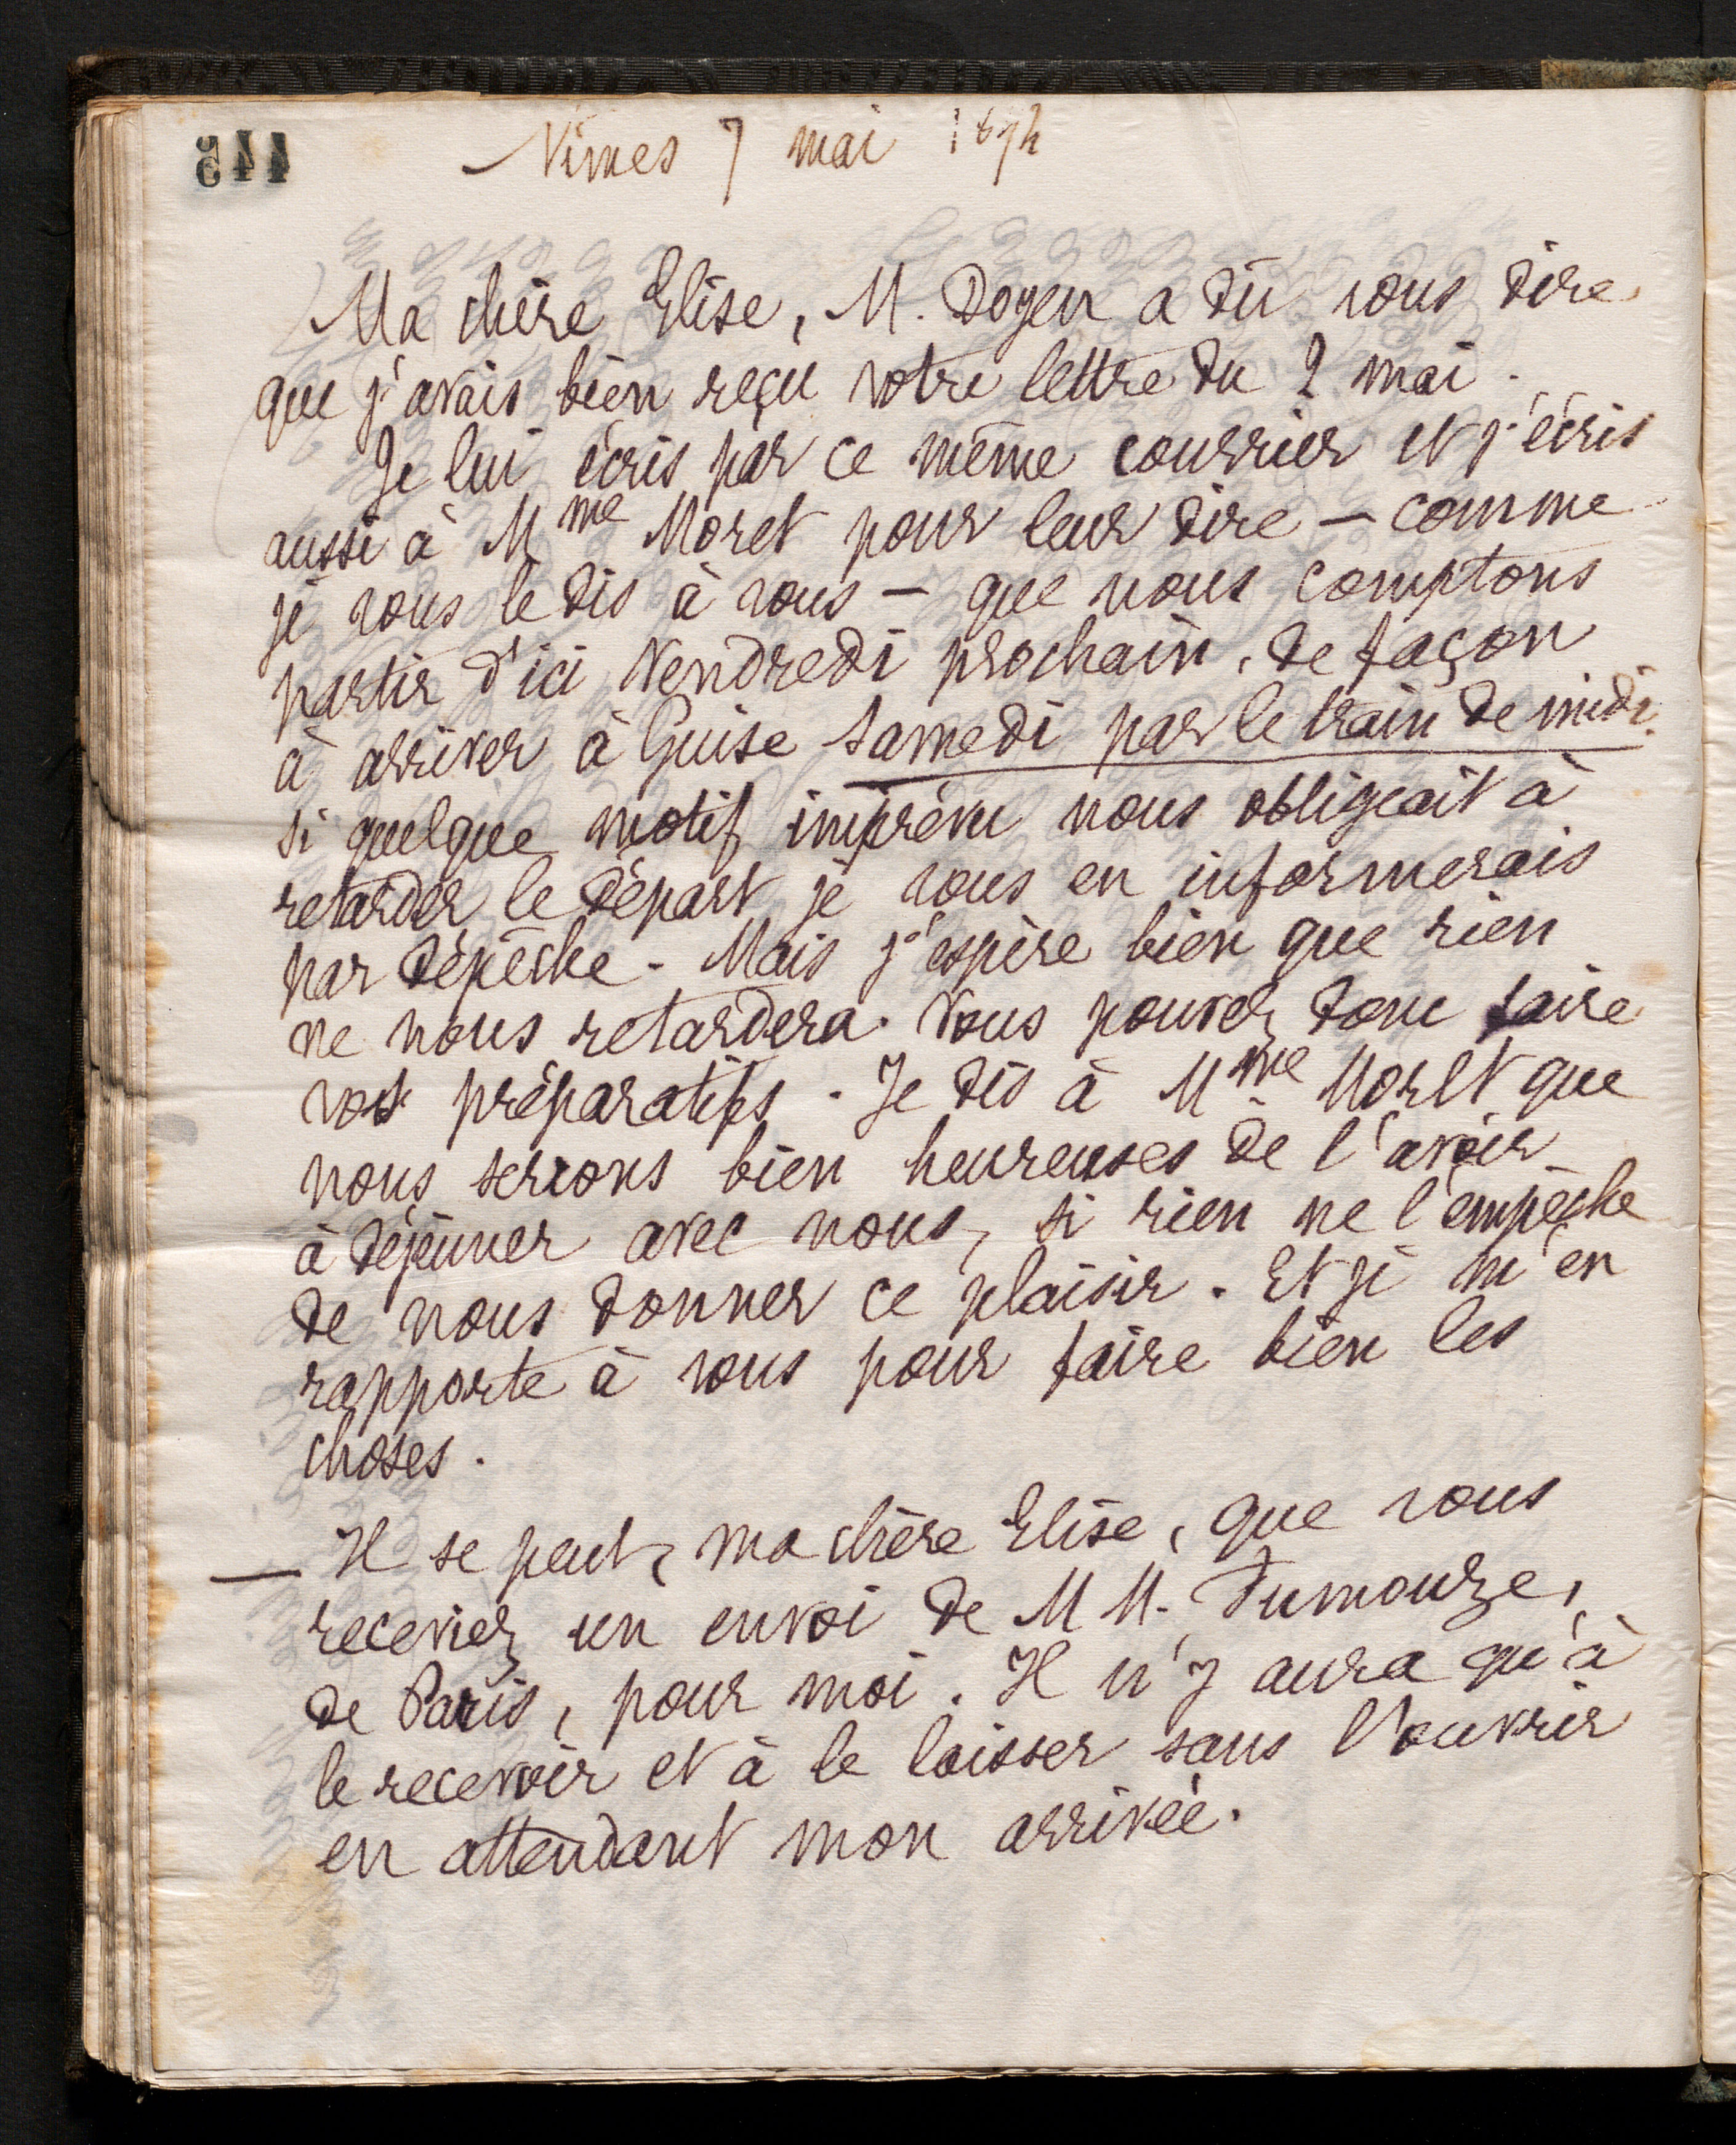 445
Nîmes 7 mai 1894
Ma chère Elise, M. Doyen a dû vous dire
que j'avais bien reçu votre lettre du 2 mai.
Je lui écris par ce même courrier et j'écris
aussi à Mme Moret pour leur dire — comme
je vous le dis à vous — que nous comptons
partir d'ici Vendredi prochain, de façon
à arriver à Guise samedi par le train de midi.
si quelque motif imprévu nous obligeait à
retarder le départ je vous en informerais
par dépêche. Mais j'espère bien que rien
ne nous retardera. Vous pouvez donc faire
vos préparatifs. Je dis à Mme Moret que
nous serions bien heureuses de l'avoir
à déjeuner avec nous, si rien ne l'empêche
de nous donner ce plaisir. Et je m'en
rapporte à vous pour faire bien les
choses.
— Il se peut, ma chère Elise, que vous
receviez un envoi de MM. Fumouze,
de Paris, pour moi. Il n'y aura qu'à
le recevoir et à le laisser sans l'ouvrir
en attendant mon arrivée.